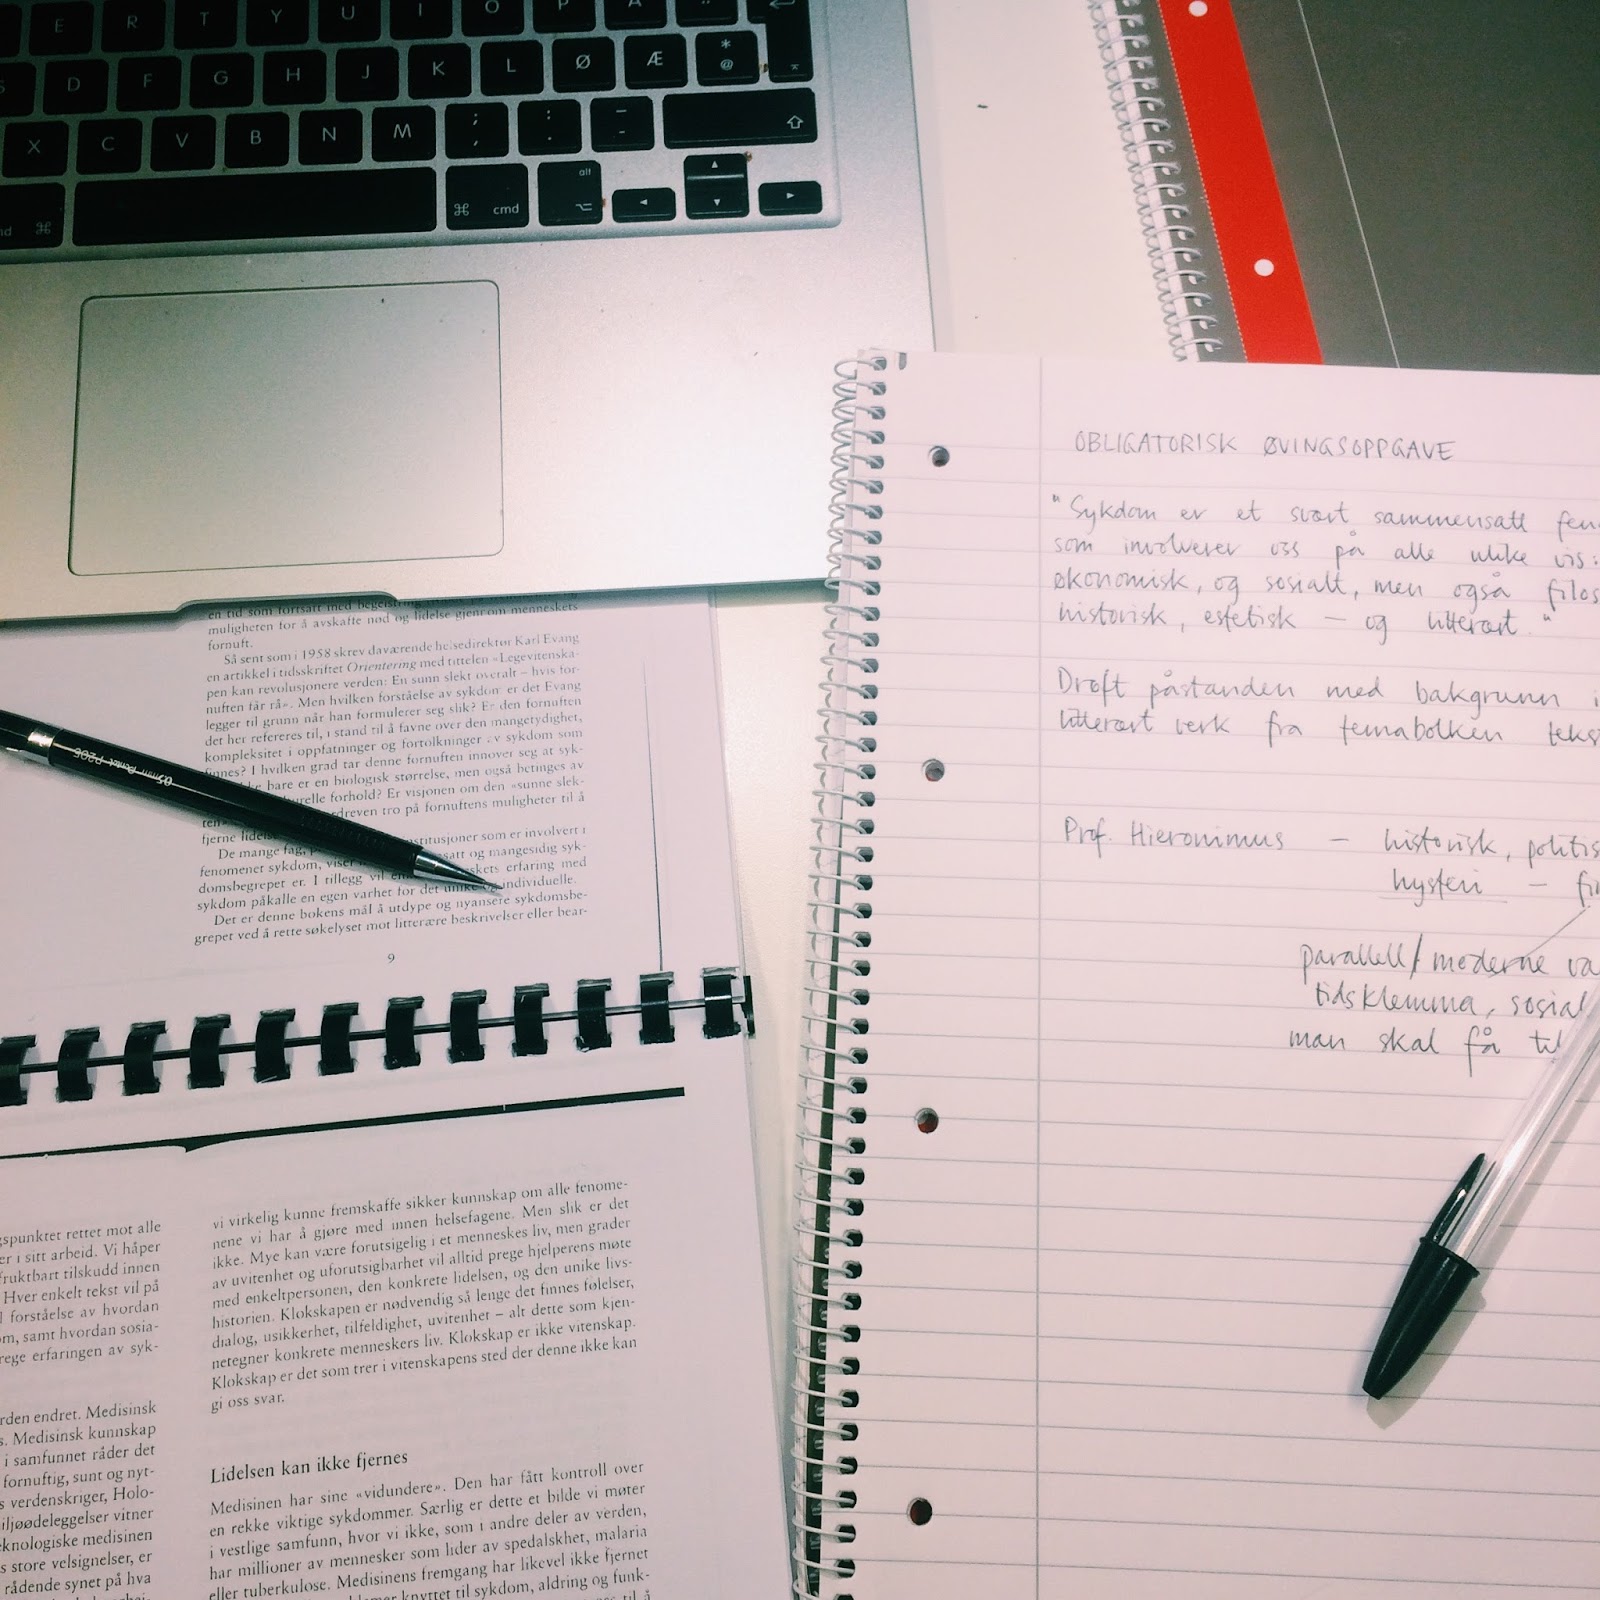 E R T Y U I O P
S D F G H J K L Ø Æ * @
X C V B N M ; , : . _ -
cmd alt
en tid som fortsatt med
muligheten for å avskaffe nød og lidelse gjennom menneskets
fornuft.
Så sent som i 1958 skrev daværende helsedirektør Karl Evang
en artikkel i tidsskriftet Orientering med tittelen «Legevitenska-
pen kan revolusjonere verden: En sunn slekt overalt – hvis for-
nuften får rå». Men hvilken forståelse av sykdom er det Evang
legger til grunn når han formulerer seg slik? Er den fornuften
det her refereres til, i stand til å favne over den mangetydighet,
kompleksitet i oppfatninger og fortolkninger av sykdom som
finnes? I hvilken grad tar denne fornuften innover seg at syk-
bare er en biologisk størrelse, men også betinges av
forhold? Er visjonen om den «sunne slek-
ten» tro på fornuftens muligheter til å
fjerne
De mange fag, som er involvert i
fenomenet sykdom, viser og mangesidig syk-
domsbegrepet er. I tillegg vil erfaring med
sykdom påkalle en egen varhet for det unike og individuelle.
Det er denne bokens mål å utdype og nyansere sykdomsbe-
grepet ved å rette søkelyset mot litterære beskrivelser eller bear-
9
0.5mm Pentel P205
gspunktet rettet mot alle
er i sitt arbeid. Vi håper
fruktbart tilskudd innen
Hver enkelt tekst vil på
forståelse av hvordan
om, samt hvordan sosia-
rege erfaringen av syk-
rden endret. Medisinsk
s. Medisinsk kunnskap
i samfunnet råder det
fornuftig, sunt og nyt-
s verdenskriger, Holo-
iljøødeleggelser vitner
eknologiske medisinen
s store velsignelser, er
rådende synet på hva
vi virkelig kunne fremskaffe sikker kunnskap om alle fenome-
nene vi har å gjøre med innen helsefagene. Men slik er det
ikke. Mye kan være forutsigelig i et menneskes liv, men grader
av uvitenhet og uforutsigbarhet vil alltid prege hjelperens møte
med enkeltpersonen, den konkrete lidelsen, og den unike livs-
historien. Klokskapen er nødvendig så lenge det finnes følelser,
dialog, usikkerhet, tilfeldighet, uvitenhet – alt dette som kjen-
netegner konkrete menneskers liv. Klokskap er ikke vitenskap.
Klokskap er det som trer i vitenskapens sted der denne ikke kan
gi oss svar.
Lidelsen kan ikke fjernes
Medisinen har sine «vidundere». Den har fått kontroll over
en rekke viktige sykdommer. Særlig er dette et bilde vi møter
i vestlige samfunn, hvor vi ikke, som i andre deler av verden,
har millioner av mennesker som lider av spedalskhet, malaria
eller tuberkulose. Medisinens fremgang har likevel ikke fjernet
knyttet til sykdom, aldring og funk-
til å
OBLIGATORISK ØVINGSOPPGAVE
"Sykdom er et svært sammensatt fen
som involverer oss på alle ulike vis:
økonomisk, og sosialt, men også filos
historisk, estetisk – og litterært."
Drøft påstanden med bakgrunn i
litterært verk fra temabolken tekst
Prof. Hieronimus – historisk, politis
hysteri – fi
parallell/moderne va
tidsklemma, sosial
man skal få til